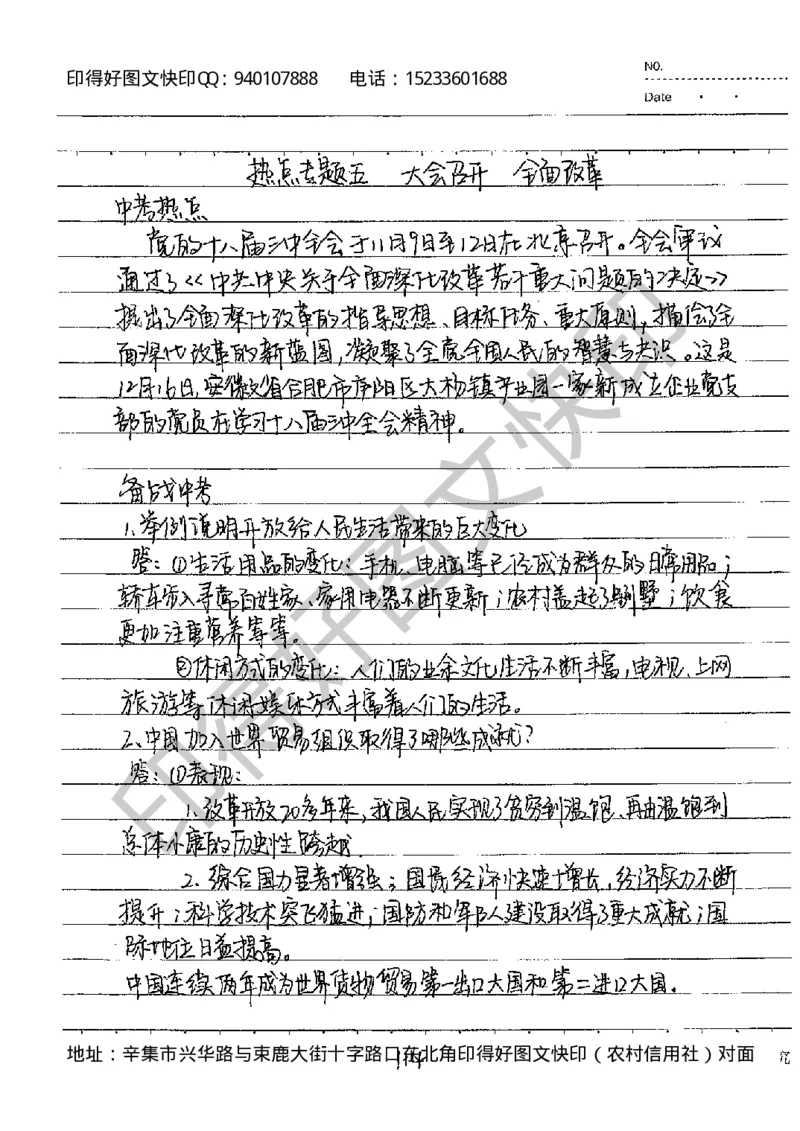 印得好图文快印QQ：940107888 电话：15233601688
No.
Date
热点专题五 大会召开 全面改革
中考热点
党的十八届三中全会于11月9日至12日在北京召开。全会审议
通过了《中共中央关于全面深化改革若干重大问题的决定》
提出了全面深化改革的指导思想、目标任务、重大原则，描绘了全
面深化改革的新蓝图，凝聚了全党全国人民的智慧与共识。这是
12月16日，安徽省合肥市庐阳区大杨镇产业园一家新成立企业党支
部的党员在学习十八届三中全会精神。
备战中考
1.举例说明开放给人民生活带来的巨大变化
答：①生活用品的变化：手机、电脑等已经成为群众的日常用品；
轿车步入寻常百姓家、家用电器不断更新；农村盖起了别墅；饮食
更加注重营养等等。
②休闲方式的变化：人们的业余文化生活不断丰富，电视、上网
旅游等休闲娱乐方式丰富着人们的生活。
2、中国加入世界贸易组织取得了哪些成就？
答：①表现：
1、改革开放20多年来，我国人民实现了贫穷到温饱、再由温饱到
总体小康的历史性跨越
2、综合国力显著增强；国民经济快速增长，经济实力不断
提升；科学技术突飞猛进；国防和军队建设取得了重大成就；国
际地位日益提高。
中国连续两年成为世界货物贸易第一出口大国和第二进口大国。
地址：辛集市兴华路与束鹿大街十字路口东北角印得好图文快印（农村信用社）对面
印得好图文快印